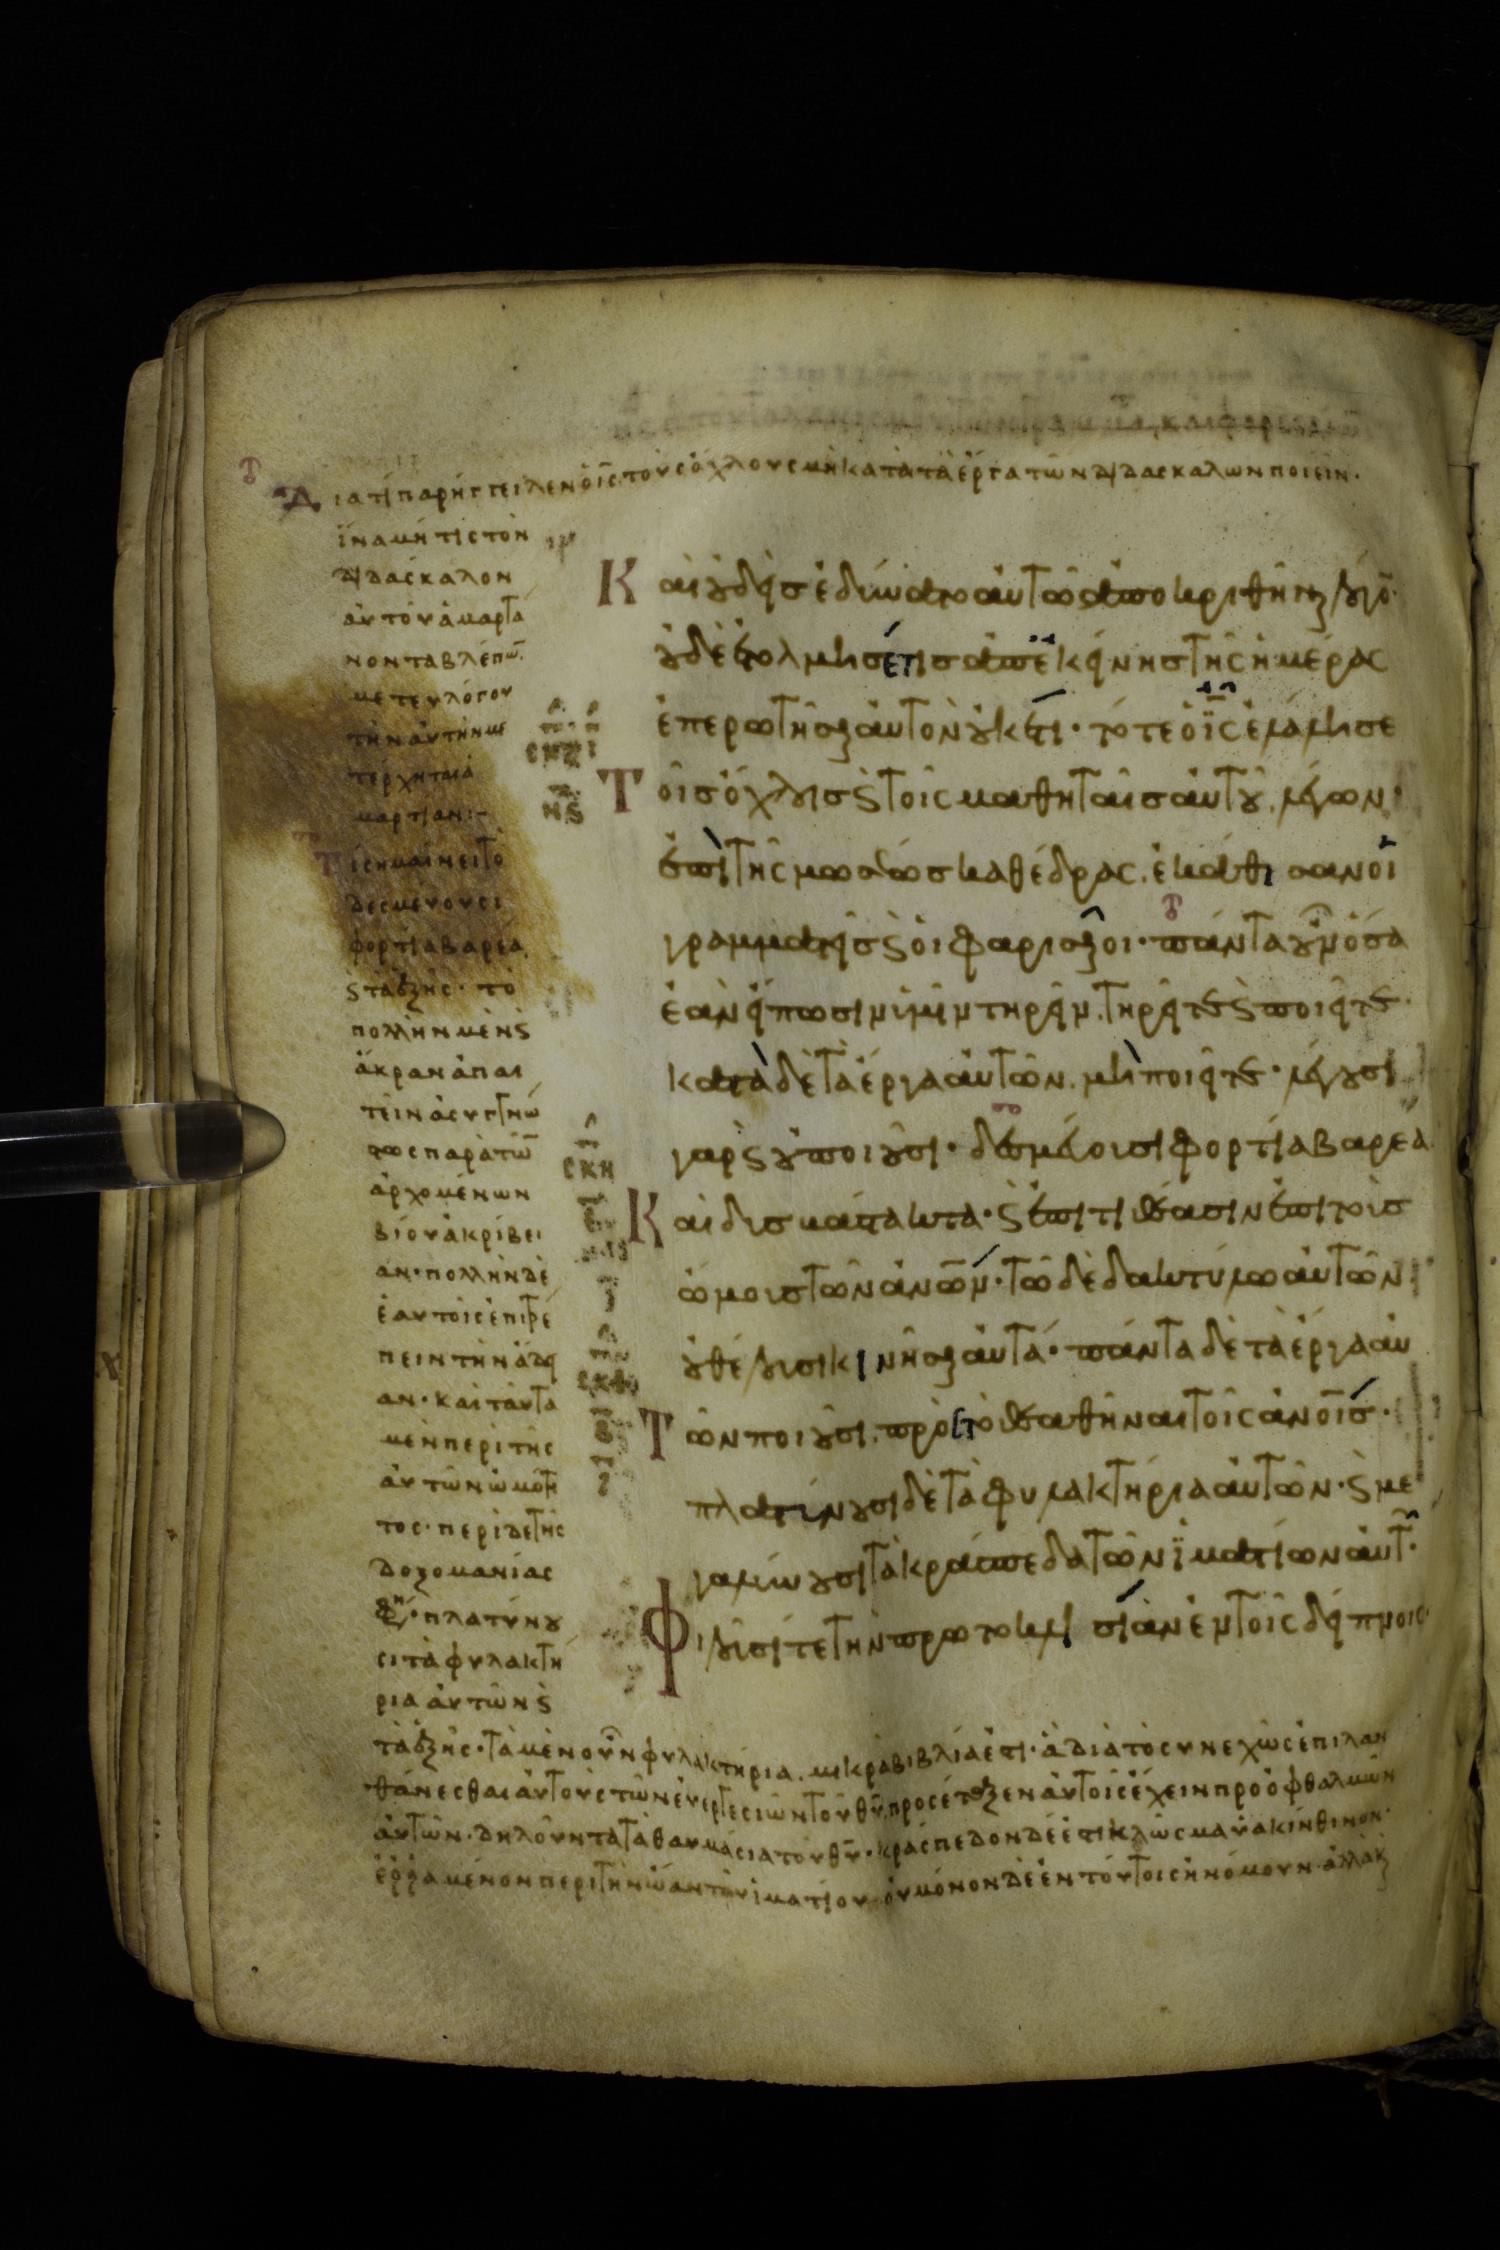 Διατί παρήγγειλεν ὁ ἰς τοὺς ὄχλους μὴ κατὰ τὰ ἔργα τῶν διδασκάλων ποιεῖν·
ἵνα μή τις τὸν
διδάσκαλον
αὐτοῦ ἁμαρτά
νοντα βλέπων
τὴν αὐτὴν με
τέρχηται ἁ
μαρτίαν:-
Τί σημαίνει τὸ
δεσμεύουσι
φορτία βαρέα
ϛ τὰ ἑξῆς· τὸ
πολλὴν μὲν ϛ
ἄκραν ἀπαι
τεῖν ἀσυγγνώ
στως παρὰ τῶν
ἀρχομένων
βίου ἀκρίβει
αν· πολλὴν δὲ
ἑαυτοῖς ἐπιτρέ
πειν τὴν ἄδει
αν· καὶ ταῦτα
μὲν περὶ τῆς
αὐτῶν ὠμότη
τος· περὶ δὲ τῆς
δοξομανίας
φη· πλατύνου
σι τὰ φυλακτή
ρια αὐτῶν ϛ
τὰ ἑξῆς· τὰ μὲν οὖν φυλακτήρια. μικρὰ βιβλία ἐστι· ἃ διὰ τὸ συνεχῶς ἐπιλαν
θάνεσθαι αὐτοὺς τῶν εὐεργεσιῶν τοῦ θυ, προσέταξεν αὐτοῖς ἔχειν πρὸ ὀφθαλμῶν
αὐτῶν· δηλοῦντα τὰ θαυμάσια τοῦ θυ· κράσπεδον δέ ἐστι κλῶσμα ὑακίνθινον·
ἐρραμένον περὶ τὴν ὤαν τοῦ ἱματίου· οὐ μόνον δὲ ἐν τούτοις ἠνόμουν· ἀλλὰ καὶ
Και οὐδεὶς ἐδύνατο αὐτῶ ἀποκριθῆναι λόγον·
οὐδὲ ἐτόλμησέ τις ἀπ ἐκείνης τῆς ἡμέρας
ἐπερωτῆσαι αὐτὸν οὐκέτι· τότε ὁ ις ἐλάλησε
Τοῖς ὄχλοις ϛ τοῖς μαθηταῖς αὐτοῦ. λέγων·
ἐπὶ τῆς μωσέως καθέδρας. ἐκάθισαν οἱ
γραμματεῖς ϛ οἱ φαρισαῖοι· πάντα οὖν ὅσα
ἐὰν εἴπωσιν ὑμῖν τηρεῖν. τηρεῖτε ϛ ποιεῖτε·
κατὰ δὲ τὰ ἔργα αὐτῶν. μὴ ποιεῖτε· λέγουσι
γὰρ ϛ οὐ ποιοῦσι· δεσμεύουσι φορτία βαρέα
Και δυσβάστακτα· ϛ ἐπιτιθέασιν ἐπὶ τοὺς
ὤμους τῶν ἀνων· τῶ δὲ δακτύλω αὐτῶν.
οὐ θέλουσι κινῆσαι αὐτά· πάντα δὲ τὰ ἔργα αὐ
Τῶν ποιοῦσι. πρὸς τὸ θεαθῆναι τοῖς ἀνοις·
πλατύνουσι δὲ τὰ φυλακτήρια αὐτῶν· ϛ με
γαλύνουσι τὰ κράσπεδα τῶν ἱματίων αὐτ·
Φιλοῦσί τε τὴν πρωτοκλισίαν ἐν τοῖς δείπνοις·